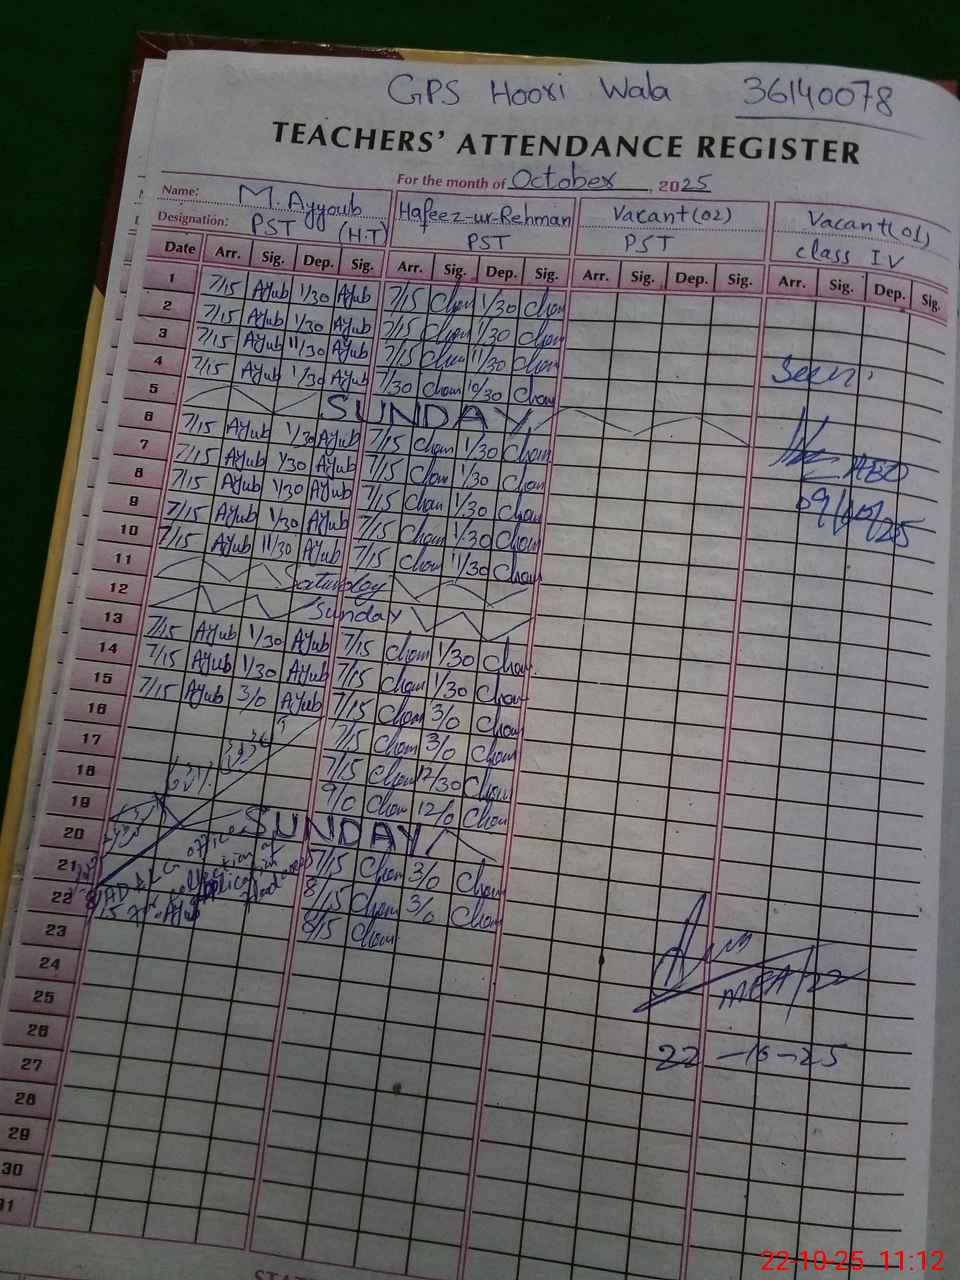 GPS Hoori Wala 36140078
TEACHERS' ATTENDANCE REGISTER
For the month of October, 2025
Name: M. Ayyoub Hafeez-ur-Rehman Vacant(02) Vacant(01)
Designation: PST (H.T) PST PST class IV
Date Arr. Sig. Dep. Sig. Arr. Sig. Dep. Sig. Arr. Sig. Dep. Sig. Arr. Sig. Dep. Sig.
1 7/15 Ayub 1/30 Ayub 7/15 Cham 1/30 Cham
2 7/15 Ayub 1/30 Ayub 7/15 Cham 1/30 Cham
3 7/15 Ayub 11/30 Ayub 7/15 Cham 11/30 Cham
4 7/15 Ayub 1/30 Ayub 7/30 Cham 10/30 Cham Seen
5 SUNDAY
6 7/15 Ayub 1/30 Ayub 7/15 Cham 1/30 Cham
7 7/15 Ayub 1/30 Ayub 7/15 Cham 1/30 Cham AEO
8 7/15 Ayub 1/30 Ayub 7/15 Cham 1/30 Cham 09/10/25
9 7/15 Ayub 1/30 Ayub 7/15 Cham 1/30 Cham
10 7/15 Ayub 11/30 Ayub 7/15 Cham 11/30 Cham
11 Saturday
12 Sunday
13 7/15 Ayub 1/30 Ayub 7/15 Cham 1/30 Cham
14 7/15 Ayub 1/30 Ayub 7/15 Cham 1/30 Cham
15 7/15 Ayub 3/0 Ayub 7/15 Cham 3/0 Cham
16 7/15 Cham 3/0 Cham
17 7/15 Cham 12/30 Cham
18 9/0 Cham 12/0 Cham
19 SUNDAY
20 7/15 Cham 3/0 Cham
21 8/15 Cham 3/0 Cham
22 8/15 Cham
23
24
25 MEA/22
26 22-10-25
27
28
29
30
31
22-10-25 11:12